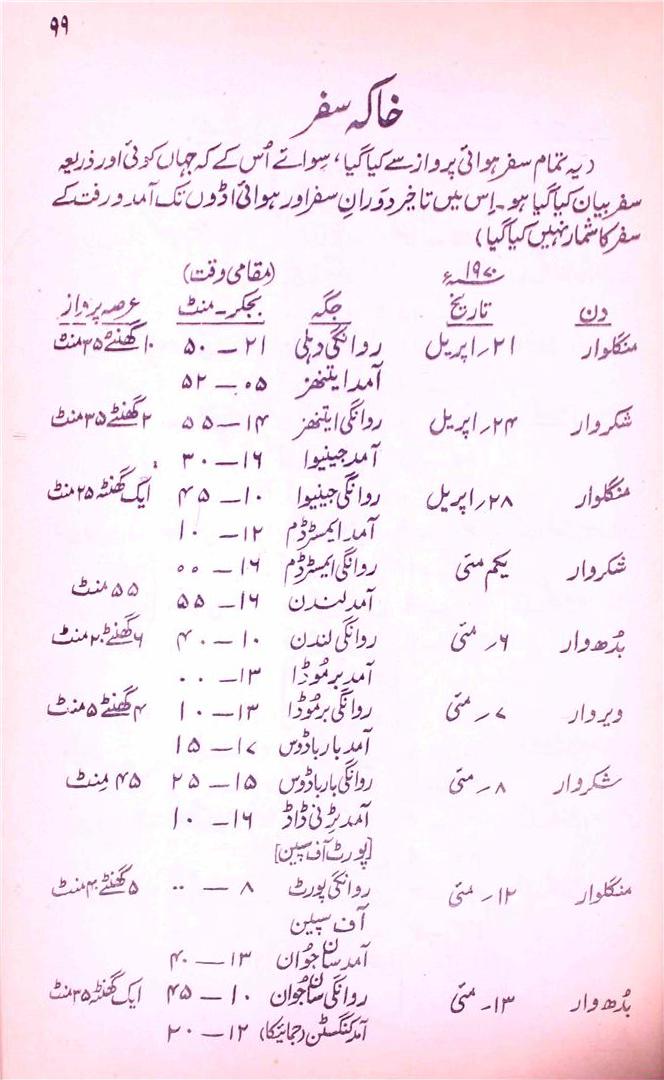 ۹۹
خاکہ سفر
(یہ تمام سفر ہوائی پرواز سے کیا گیا، سوائے اُس کے کہ جہاں کوئی اور ذریعہ
سفر بیان کیا گیا ہو۔ اِس میں تاخیر دَورانِ سفر اور ہوائی اڈوں تک آمد و رفت کے
سفر کا شمار نہیں کیا گیا)
۱۹۷۰ء (مقامی وقت)
دن تاریخ جگہ بجکر۔منٹ عرصہ پرواز
منگلوار ۲۱؍ اپریل روانگی دہلی ۲۱—۵۰ ۱۰ گھنٹے ۳۵ منٹ
آمد ایتنھز ۰۵—۵۲
شکروار ۲۴؍ اپریل روانگی ایتنھز ۱۴—۵۵ ۲ گھنٹے ۳۵ منٹ
آمد جینیوا ۱۶—۳۰
منگلوار ۲۸؍ اپریل روانگی جینیوا ۱۰—۴۵ ایک گھنٹہ ۲۵ منٹ
آمد ایمسٹرڈم ۱۲—۱۰
شکروار یکم مئی روانگی ایمسٹرڈم ۱۶—۰۰
۵۵ منٹ
آمد لندن ۱۶—۵۵
بُدھ وار ۶؍ مئی روانگی لندن ۱۰—۴۰ ۶ گھنٹے ۲۰ منٹ
آمد برموڈا ۱۳—۰۰
ویروار ۷؍ مئی روانگی برموڈا ۱۳—۱۰ ۴ گھنٹے ۵ منٹ
آمد بارباڈوس ۱۷—۱۵
شکروار ۸؍ مئی روانگی بارباڈوس ۱۵—۲۵ ۴۵ منٹ
آمد ٹرنی ڈاڈ ۱۶—۱۰
[پورٹ آف سپین]
منگلوار ۱۲؍ مئی روانگی پورٹ ۸—۰۰ ۵ گھنٹے ۴۰ منٹ
آف سپین
آمد سان جُوان ۱۳—۴۰
بُدھ وار ۱۳؍ مئی روانگی سان جُوان ۱۰—۴۵ ایک گھنٹہ ۳۵ منٹ
آمد کنگسٹن (جمائیکا) ۱۲—۲۰